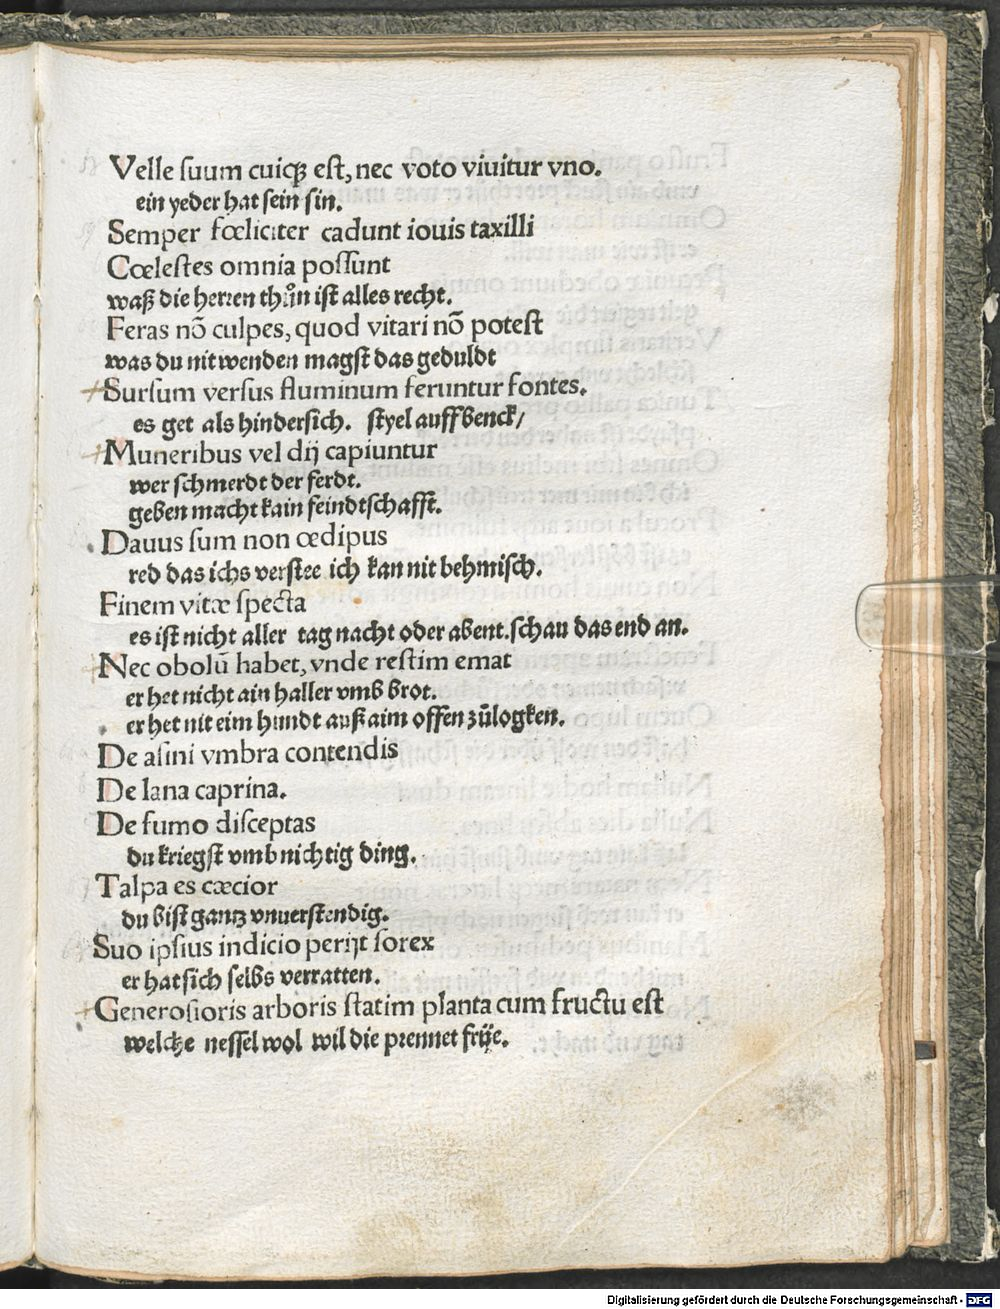 Velle ſuum cuiqȝ eſt, nec voto viuitur vno.
ein yeder hat ſein ſin.
Semper fœliciter cadunt iouis taxilli
Cœleſtes omnia poſſunt
waß die herren thůn iſt alles recht.
Feras nō culpes, quod vitari nō poteſt
was du nit wenden magſt das geduldt
Surſum verſus fluminum feruntur fontes.
es get als hinderſich. ſtyel auff benck/
Muneribus vel dij capiuntur
wer ſchmerdt der ferdt.
geben macht kain feindtſchafft.
Dauus ſum non œdipus
red das ichs verſtee ich kan nit behmiſch.
Finem vitæ ſpecta
es iſt nicht aller tag nacht oder abent. ſchau das end an.
Nec obolū habet, vnde reſtim emat
er het nicht ain haller vmb brot.
er het nit eim hundt auß aim offen zůlogken.
De aſini vmbra contendis
De lana caprina.
De fumo diſceptas
du kriegſt vmb nichtig ding.
Talpa es cæcior
du biſt gantz vnuerſtendig.
Suo ipſius indicio perijt ſorex
er hat ſich ſelbs verratten.
Generoſioris arboris ſtatim planta cum fructu eſt
welche neſſel wol wil die prennet frije.
Digitalisierung gefördert durch die Deutsche Forschungsgemeinschaft - DFG